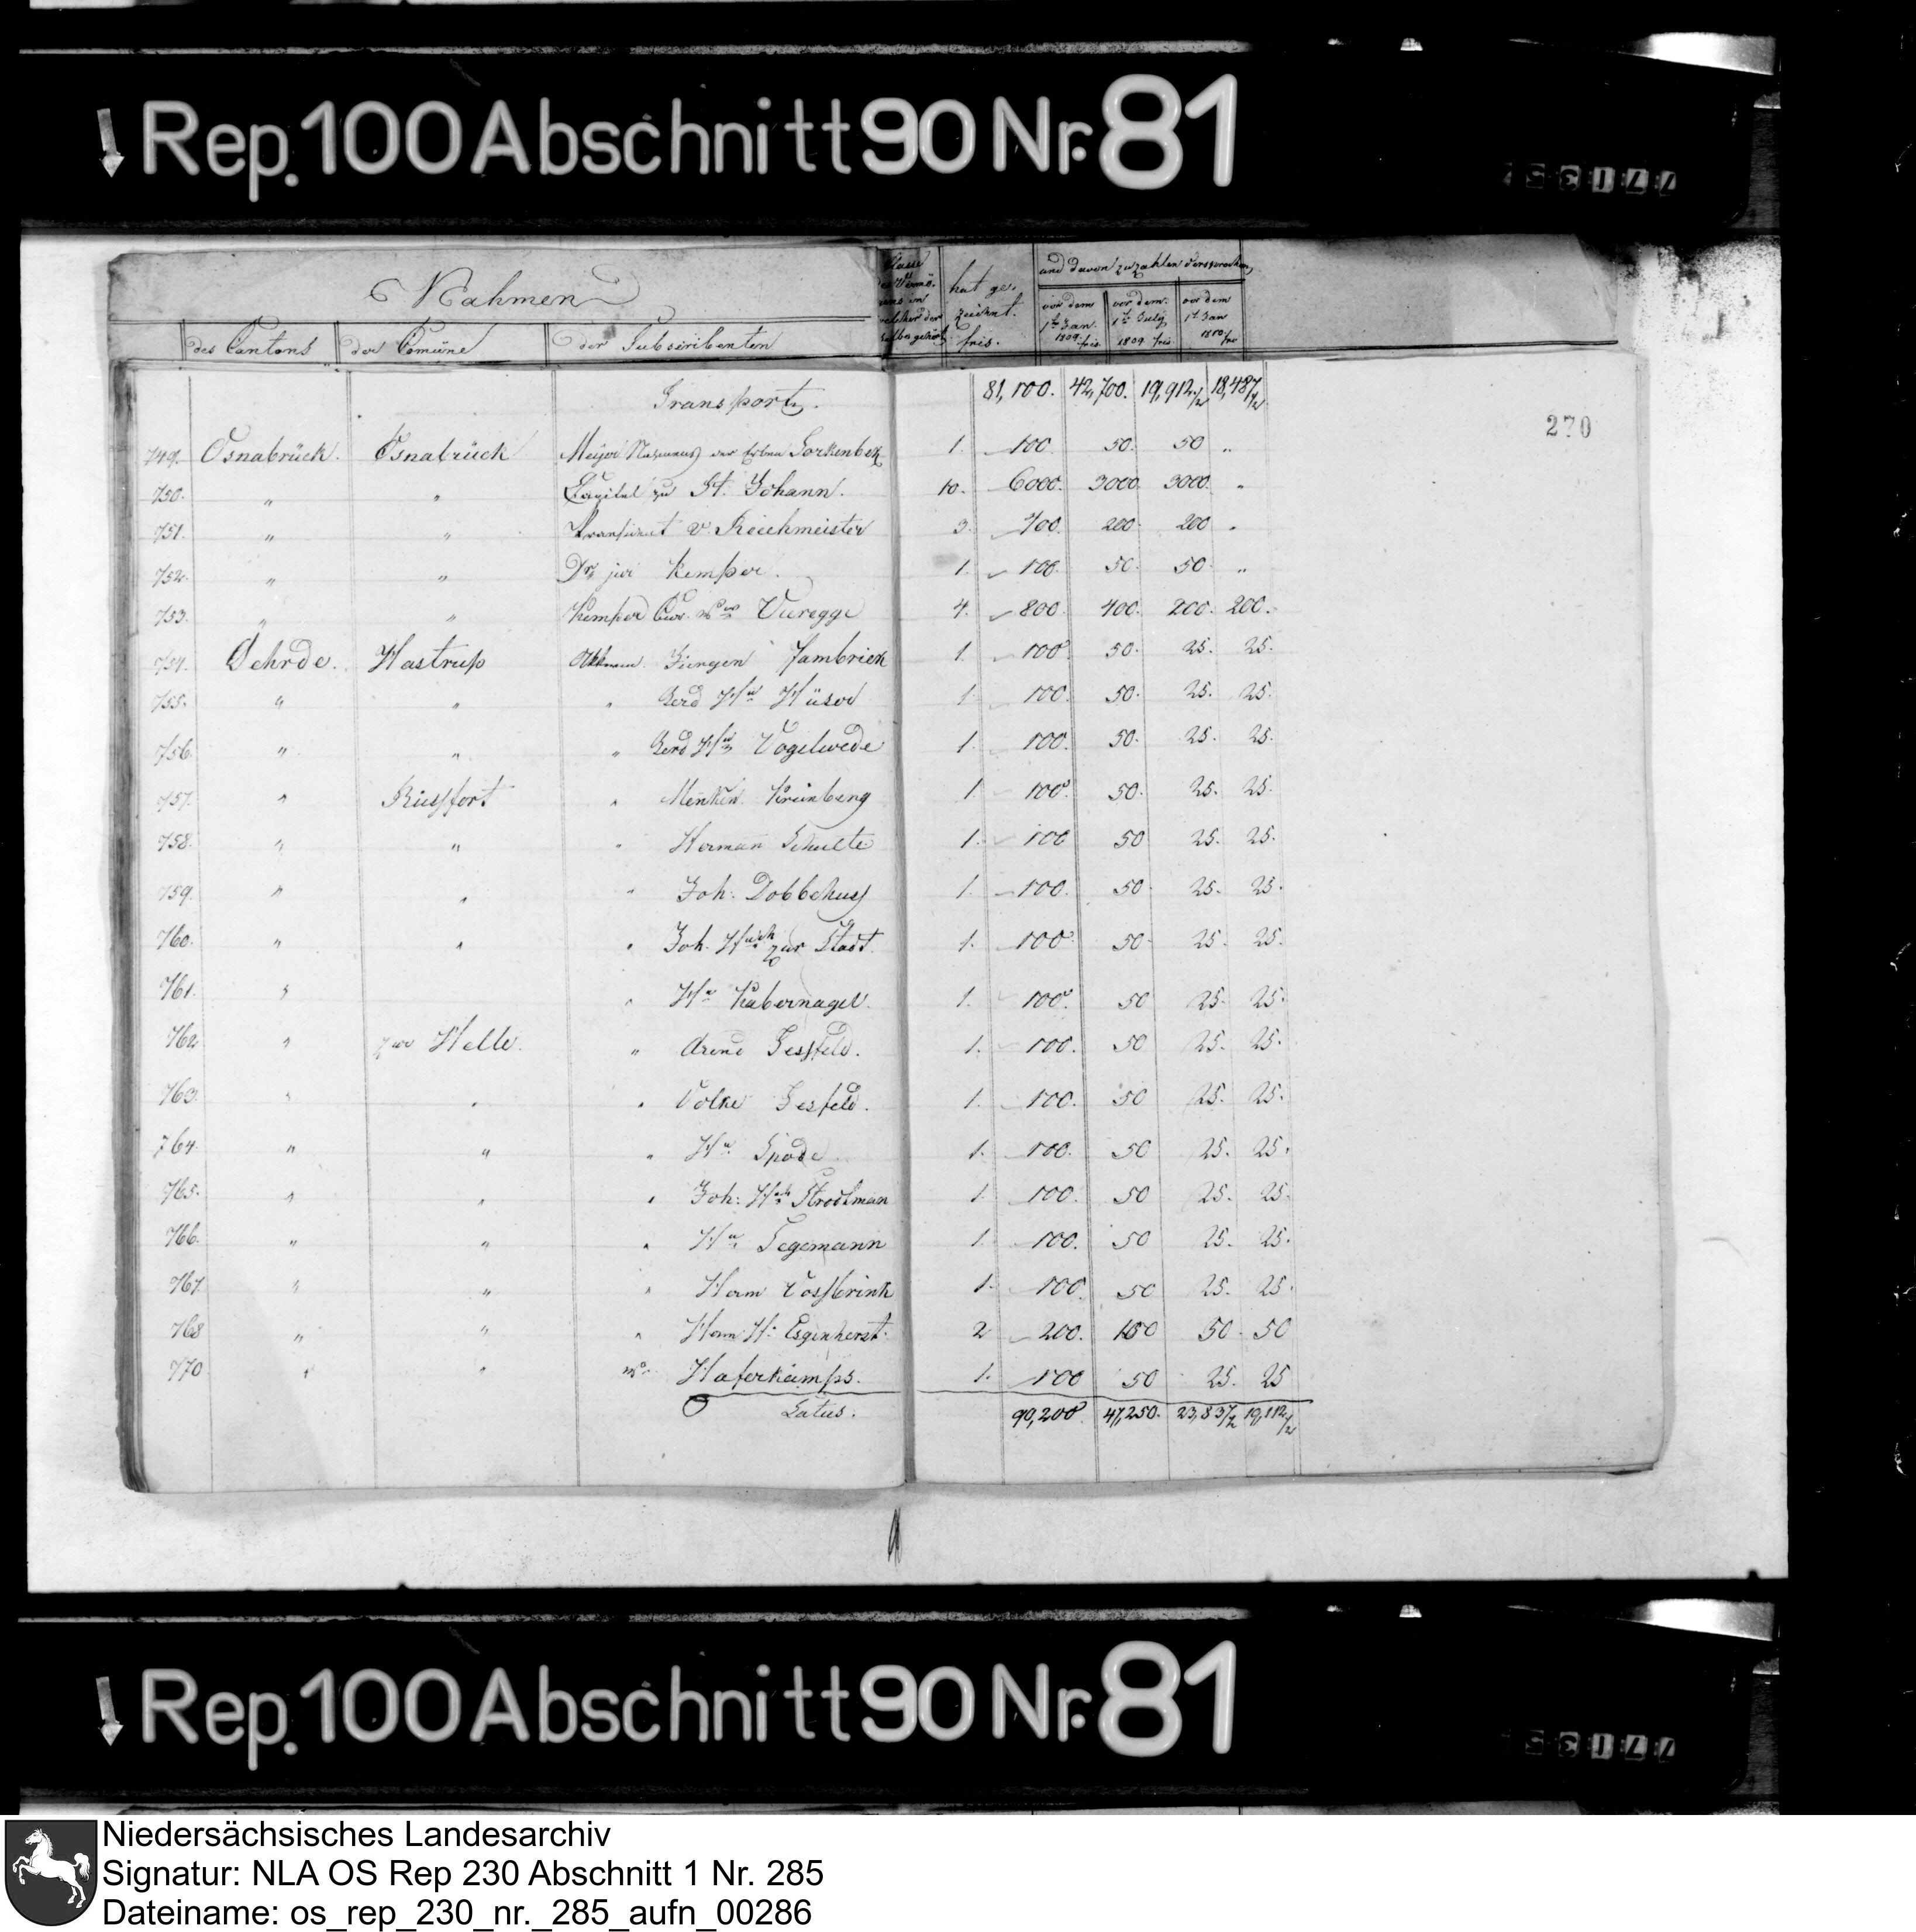 Rep. 100 Abschnitt 90 Nr. 81
77135
Nahmen
des Cantons der Comüne der Subscribenten
Classe des Vermö- in welcher der gehört
hat ge- zeichnet. frcs.
und davon zu zahlen versprochen
vor dem 1t Jan. 1809 frcs.
vor dem 1t July 1809 frcs
vor dem 1t Jan 1810 frcs
270
Transport. 81,100. 42,700. 19,912 1/2 18,487 1/2
749. Osnabrück. Osnabrück Meijer Nahmens der Erben 1. 100. 50. 50 „
750. „ „ Capitel zu St. Johann. 10. 6000. 3000. 3000. „
751. „ „ v. Reichmeister 3. 400. 200. 200 „
752. „ „ Dr. jur Kemper. 1. 100. 50. 50. „
753. „ „ Kemper Cur. Vieregge 4. 800. 400. 200. 200.
754. Oehrde. Hastrup Jürgen 1. 100. 50. 25. 25.
755. „ „ „ Gerd Hn Hüser 1. 100. 50. 25. 25.
756. „ „ „ Gerd Hn Vogelwede 1. 100. 50. 25. 25.
757. „ Rüsfort „ Menken Kreinberg 1. 100. 50. 25. 25.
758. „ „ „ Herman Schulte 1. 100 50 25. 25.
759. „ „ „ Joh: Dobbehus 1. 100. 50. 25. 25.
760. „ „ „ Joh. Hinrich zur Stadt. 1. 100. 50. 25. 25.
761. „ „ Hn Habernagel. 1. 100. 50 25. 25.
762. „ zur Helle. „ Arend Sesfeld. 1. 100. 50 25. 25.
763. „ „ „ Volke Sesfeld. 1. 100. 50 25. 25.
764. „ „ „ Hn Spode 1. 100. 50 25. 25.
765. „ „ „ Joh: Hch Strodtman 1. 100. 50 25. 25.
766. „ „ „ Hn Tegemann 1. 100. 50 25. 25.
767. „ „ „ Herm Vosbrink 1. 100. 50 25. 25.
768 „ „ „ Herm H: Esginherst. 2 200. 100 50. 50
770 „ „ Haferkamps. 1. 100 50 25. 25
Latus. 90,200. 47,250. 23,837 1/2 19,112 1/2
Rep. 100 Abschnitt 90 Nr. 81
77135
Niedersächsisches Landesarchiv
Signatur: NLA OS Rep 230 Abschnitt 1 Nr. 285
Dateiname: os_rep_230_nr._285_aufn_00286